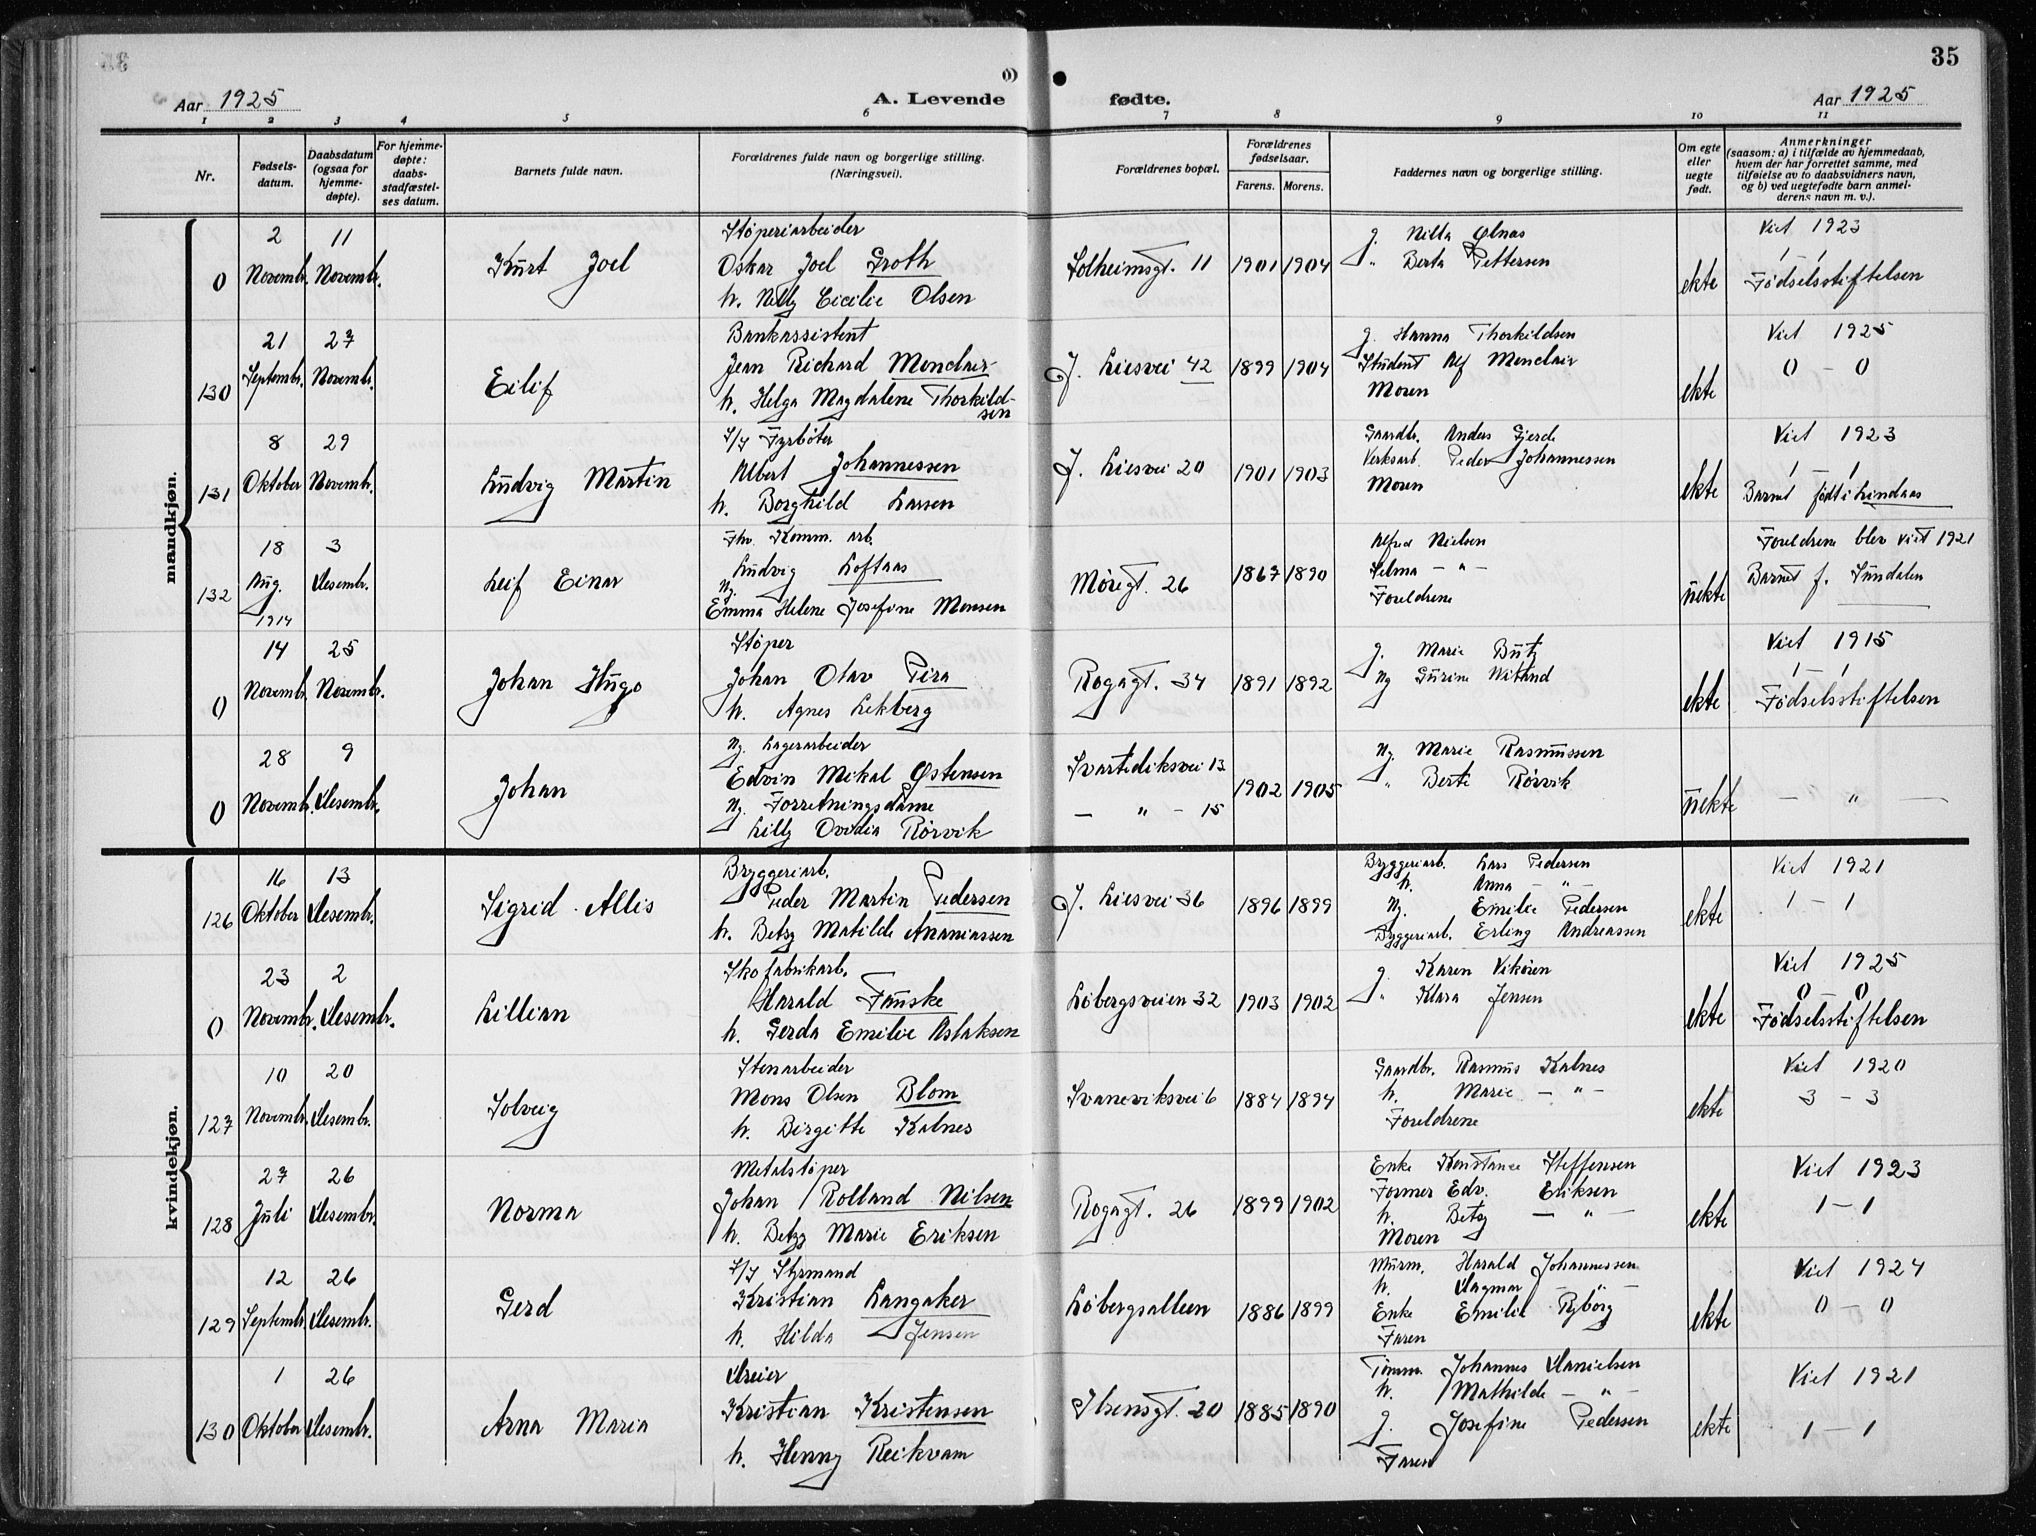 35
Aar 1925
A. Levende fødte.
Aar 1925
1 2 3 4 5 6 7 8 9 10 11
Nr.
Fødsels-
datum.
Daabsdatum
(ogsaa for
hjemme-
døpte).
For hjemme-
døpte:
daabs-
stadfæstel-
ses datum.
Barnets fulde navn.
Forældrenes fulde navn og borgerlige stilling.
(Næringsvei).
Forældrenes bopæl.
Forældrenes
fødselsaar.
Farens. Morens.
Faddernes navn og borgerlige stilling.
Om egte
eller
uegte
født.
Anmerkninger
(saasom: a) i tilfælde av hjemmedaab,
hvem der har forrettet samme, med
tilføielse av to daabsvidners navn,
og b) ved uegtefødte barn anmel-
derens navn m. v.).
mandkjøn.
0
2
Novembr.
11
Novembr.
Kurt Joel
Støperiarbeider
Oskar Joel Groth
h. Nelly Cicilie Olsen
Solheimsgt. 11
1901 1904
j. Nilla Ølnas
" Berta Pettersen
ekte
Viet 1923
1 1
Fødselsstiftelsen
130
21
Septembr.
27
Novembr.
Eilif
Bankassistent
Jean Richard Monclair
h. Helga Magdalene Thorkild-
sen
J. Liesvei 42
1899 1904
j. Hanna Thorkildsen
Student Alf Monclair
Moren
ekte
Viet 1925
0 - 0
131
8
Oktober
29
Novembr.
Ludvig Martin
S/S Fyrbøter
Albert Johannessen
h. Borghild Larsen
J. Liesvei 20
1901 1903
Gaardbr. Anders Gjerde
Verksarb. Peder Johannessen
Moren
ekte
Viet 1923
1 1
Barnet født i Lindaas
132
18
Aug.
1914
3
Desembr.
Leif Einar
Fhv. Komm. arb.
Ludvig Loftaas
Ng.
Emma Helene Josefine Monsen
Møregt. 26
1867 1890
Alfred Nielsen
Selma - " -
Foreldrene
uekte
Foreldrene blev viet 1921
Barnet f. Sundalen
0
14
Novembr.
25
Novembr.
Johan Hugo
Støper
Johan Olav Pira
h. Agnes Lekberg
Rogagt. 34
1891 1892
j. Marie Butz
Ng Gurine Witand
ekte
Viet 1915
1 1
Fødselsstiftelsen
0
28
Novembr.
9
Desembr.
Johan
Ng. Lagerarbeider
Edvin Mikal Østensen
Ng. Forretningsdame
Lilly Ovidia Rørvik
Svartediksvei 13
— " - 15
1902 1905
Ng. Marie Rasmussen
" Berte Rørvik
uekte
— " —
kvindekjøn.
126
16
Oktober
13
Desembr.
Sigrid Allis
Bryggeriarb.
Peder Martin Pedersen
h. Betsy Matilde Ananiassen
J. Liesvei 36
1896 1899
Bryggeriarb. Lars Pedersen
h. Anna - " -
Ng. Emilie Pedersen
Bryggeriarb. Erling Andreassen
ekte
Viet 1921
1 - 1
0
23
Novembr.
2
Desembr.
Lillian
Skofabrikarb.
Harald Fauske
h. Gerda Emilie Aslaksen
Løbergsveien 32
1903 1902
j. Karen Vikøren
" Klara Jensen
ekte
Viet 1925
0 - 0
Fødselsstiftelsen
127
10
Novembr.
20
Desembr.
Solveig
Stenarbeider
Mons Olsen Blom
h. Birgitte Kalnes
Svaneviksvei 6
1884 1894
Gaardbr. Rasmus Kalnes
h. Marie - " -
Foreldrene
ekte
Viet 1920
3 - 3
128
27
Juli
26
Desembr.
Norma
Metalstøper
Johan Rolland Nilsen
h. Betzy Marie Eriksen
Rogagt. 26
1899 1902
Enke Konstance Steffensen
Former Edv. Eriksen
h. Betsy — " —
Moren
ekte
Viet 1923
1 - 1
129
12
Septembr.
26
Desembr.
Gerd
S/S Styrmand
Kristian Langaker
h. Hilda Jensen
Løbergsalleen
1886 1899
Murm. Harald Johannessen
h. Dagmar - " -
Enke Emilie Ryborg
Faren
ekte
Viet 1924
0 - 0
130
1
Oktober
26
Desembr.
Arna Maria
Dreier
Kristian Kristensen
h. Henny Reikvam
Ibsensgt. 20
1885 1890
Tømm. Johannes Danielsen
h. Mathilde - " -
j. Josefine Pedersen
Faren
ekte
Viet 1921
1 - 1